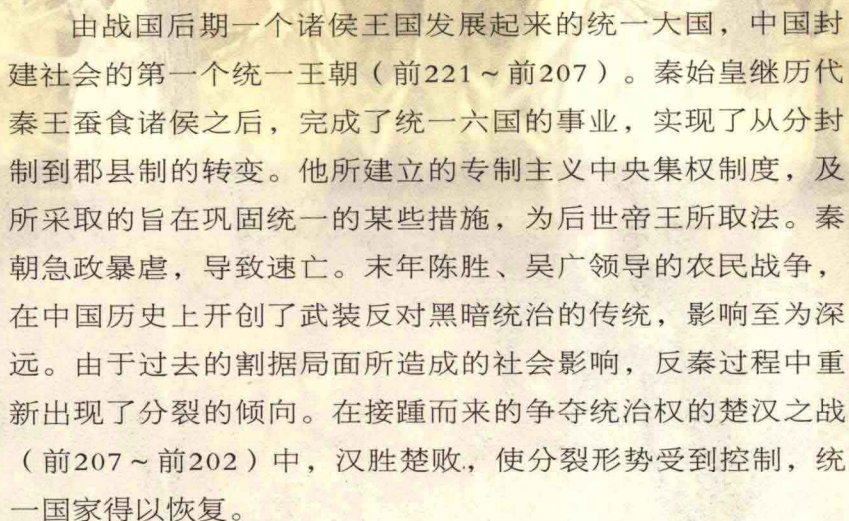 由战国后期一个诸侯王国发展起来的统一大国，中国封
建社会的第一个统一王朝（前221～前207）。秦始皇继历代
秦王蚕食诸侯之后，完成了统一六国的事业，实现了从分封
制到郡县制的转变。他所建立的专制主义中央集权制度，及
所采取的旨在巩固统一的某些措施，为后世帝王所取法。秦
朝急政暴虐，导致速亡。末年陈胜、吴广领导的农民战争，
在中国历史上开创了武装反对黑暗统治的传统，影响至为深
远。由于过去的割据局面所造成的社会影响，反秦过程中重
新出现了分裂的倾向。在接踵而来的争夺统治权的楚汉之战
（前207～前202）中，汉胜楚败，使分裂形势受到控制，统
一国家得以恢复。